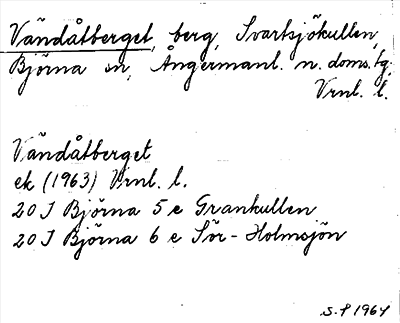 Vändåtberget, berg, Svartsjökullen,
Björna sn, Ångermanl. n. doms.tg,
Vrnl. l.
Vändåtberget
ek (1963) Vrnl. l.
20 J Björna 5 e Grankullen
20 J Björna 6 e Sör-Holmsjön
S.F 1964